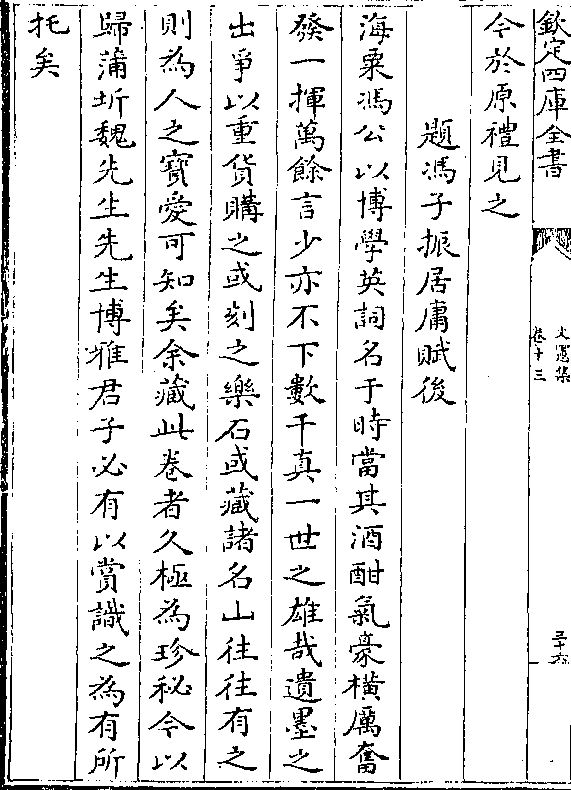 欽定四庫全書
文憲集
卷十三
三十六
今於原禮見之
題馮子振居庸賦後
海粟馮公以博學英詞名于時當其酒酣氣豪橫厲奮
發一揮萬餘言少亦不下數千真一世之雄哉遺墨之
出爭以重貨購之或刻之樂石或藏諸名山往往有之
則為人之寶愛可知矣余藏此卷者久極為珍秘今以
歸蒲圻魏先生先生博雅君子必有以賞識之為有所
托矣